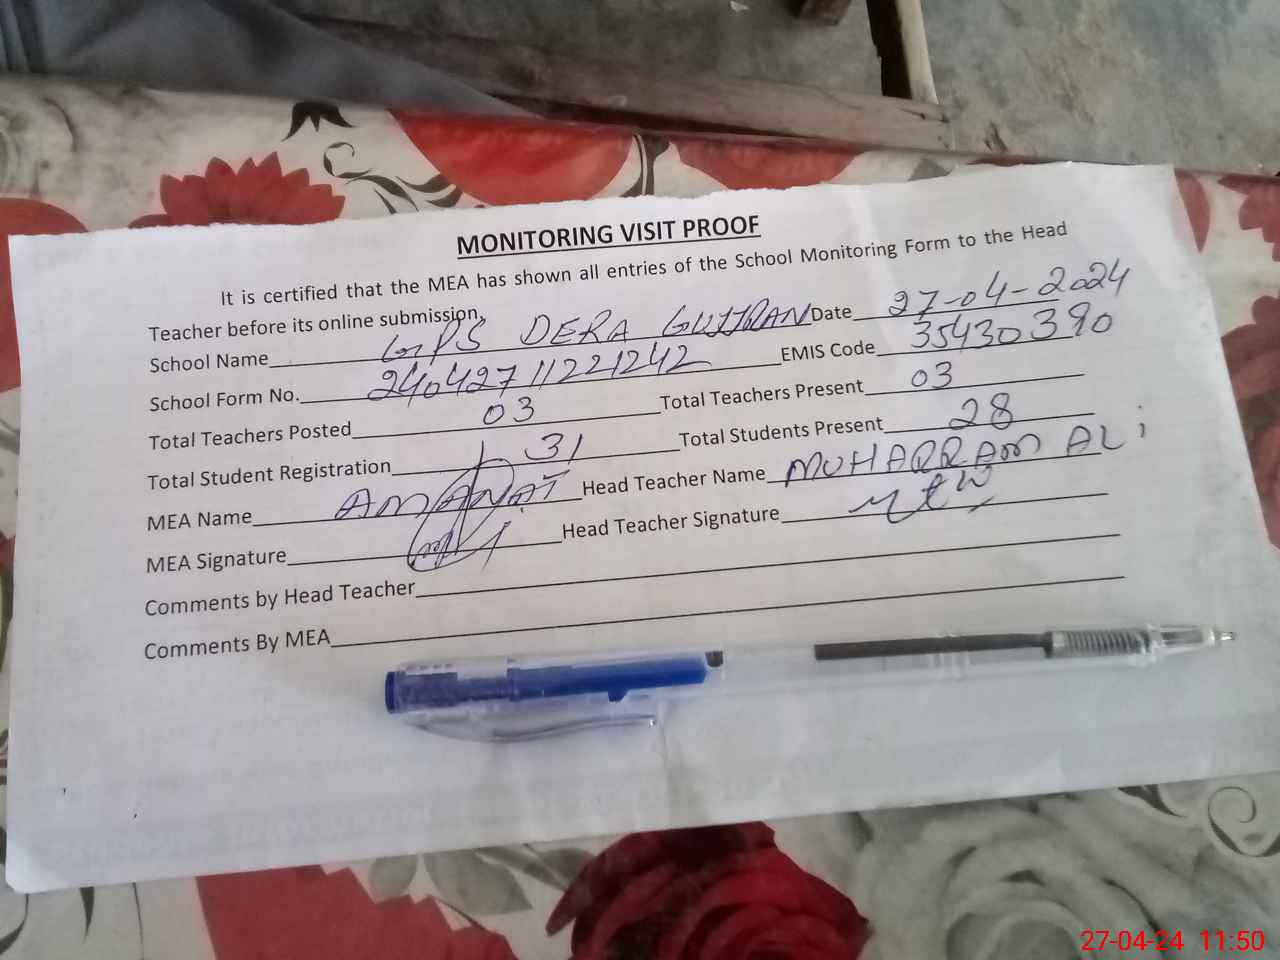 MONITORING VISIT PROOF
It is certified that the MEA has shown all entries of the School Monitoring Form to the Head
Teacher before its online submission.
School Name GPS DERA GUJJRAN Date 27-04-2024
School Form No. 24042711221242 EMIS Code 35430390
Total Teachers Posted 03 Total Teachers Present 03
Total Student Registration 31 Total Students Present 28
MEA Name AMANAT Head Teacher Name MUHARRAM ALi
MEA Signature Head Teacher Signature
Comments by Head Teacher
Comments By MEA
27-04-24 11:50